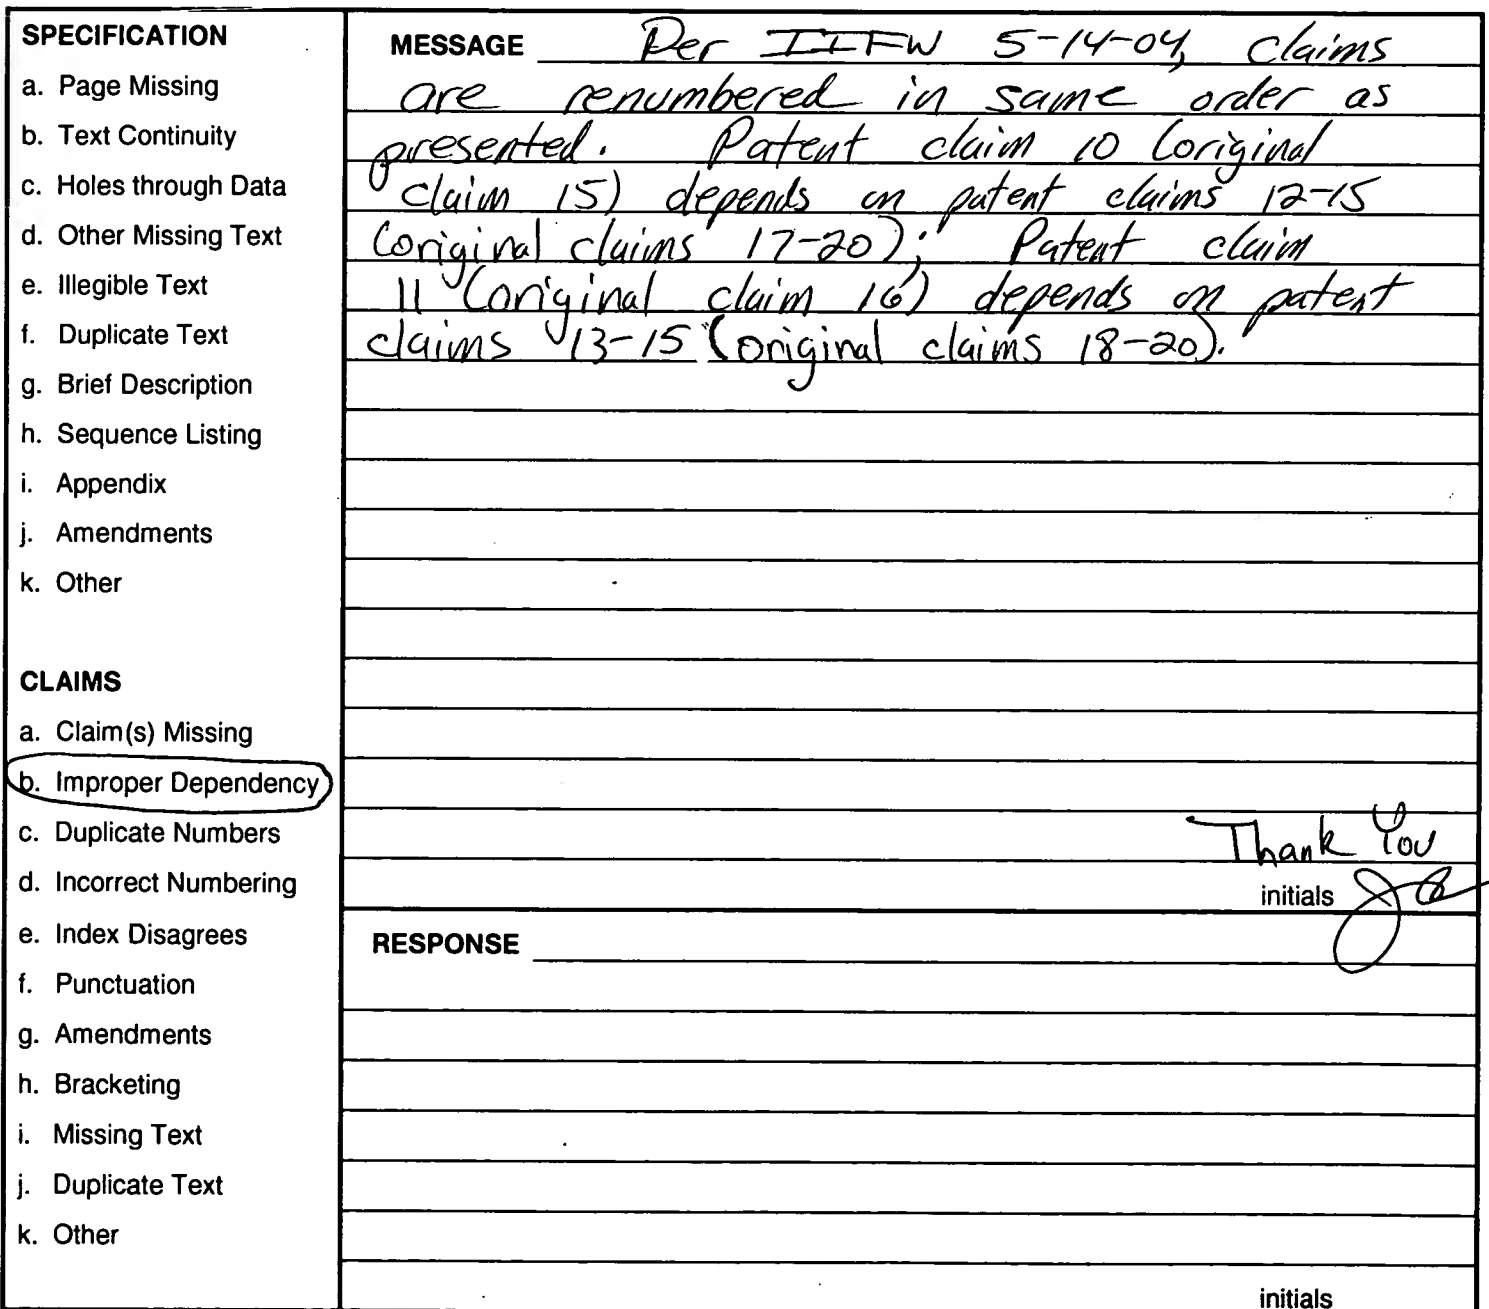 SPECIFICATION
a. Page Missing
b. Text Continuity
c. Holes through Data
d. Other Missing Text
e. Illegible Text
f. Duplicate Text
g. Brief Description
h. Sequence Listing
i. Appendix
j. Amendments
k. Other
CLAIMS
a. Claim(s) Missing
b. Improper Dependency
c. Duplicate Numbers
d. Incorrect Numbering
e. Index Disagrees
f. Punctuation
g. Amendments
h. Bracketing
i. Missing Text
j. Duplicate Text
k. Other
MESSAGE Per IIFW 5-14-04, claims
are renumbered in same order as
presented. Patent claim 10 (original
claim 15) depends on patent claims 12-15
(original claims 17-20); Patent claim
11 (original claim 16) depends on patent
claims 13-15 (original claims 18-20).
Thank You
initials
RESPONSE
initials